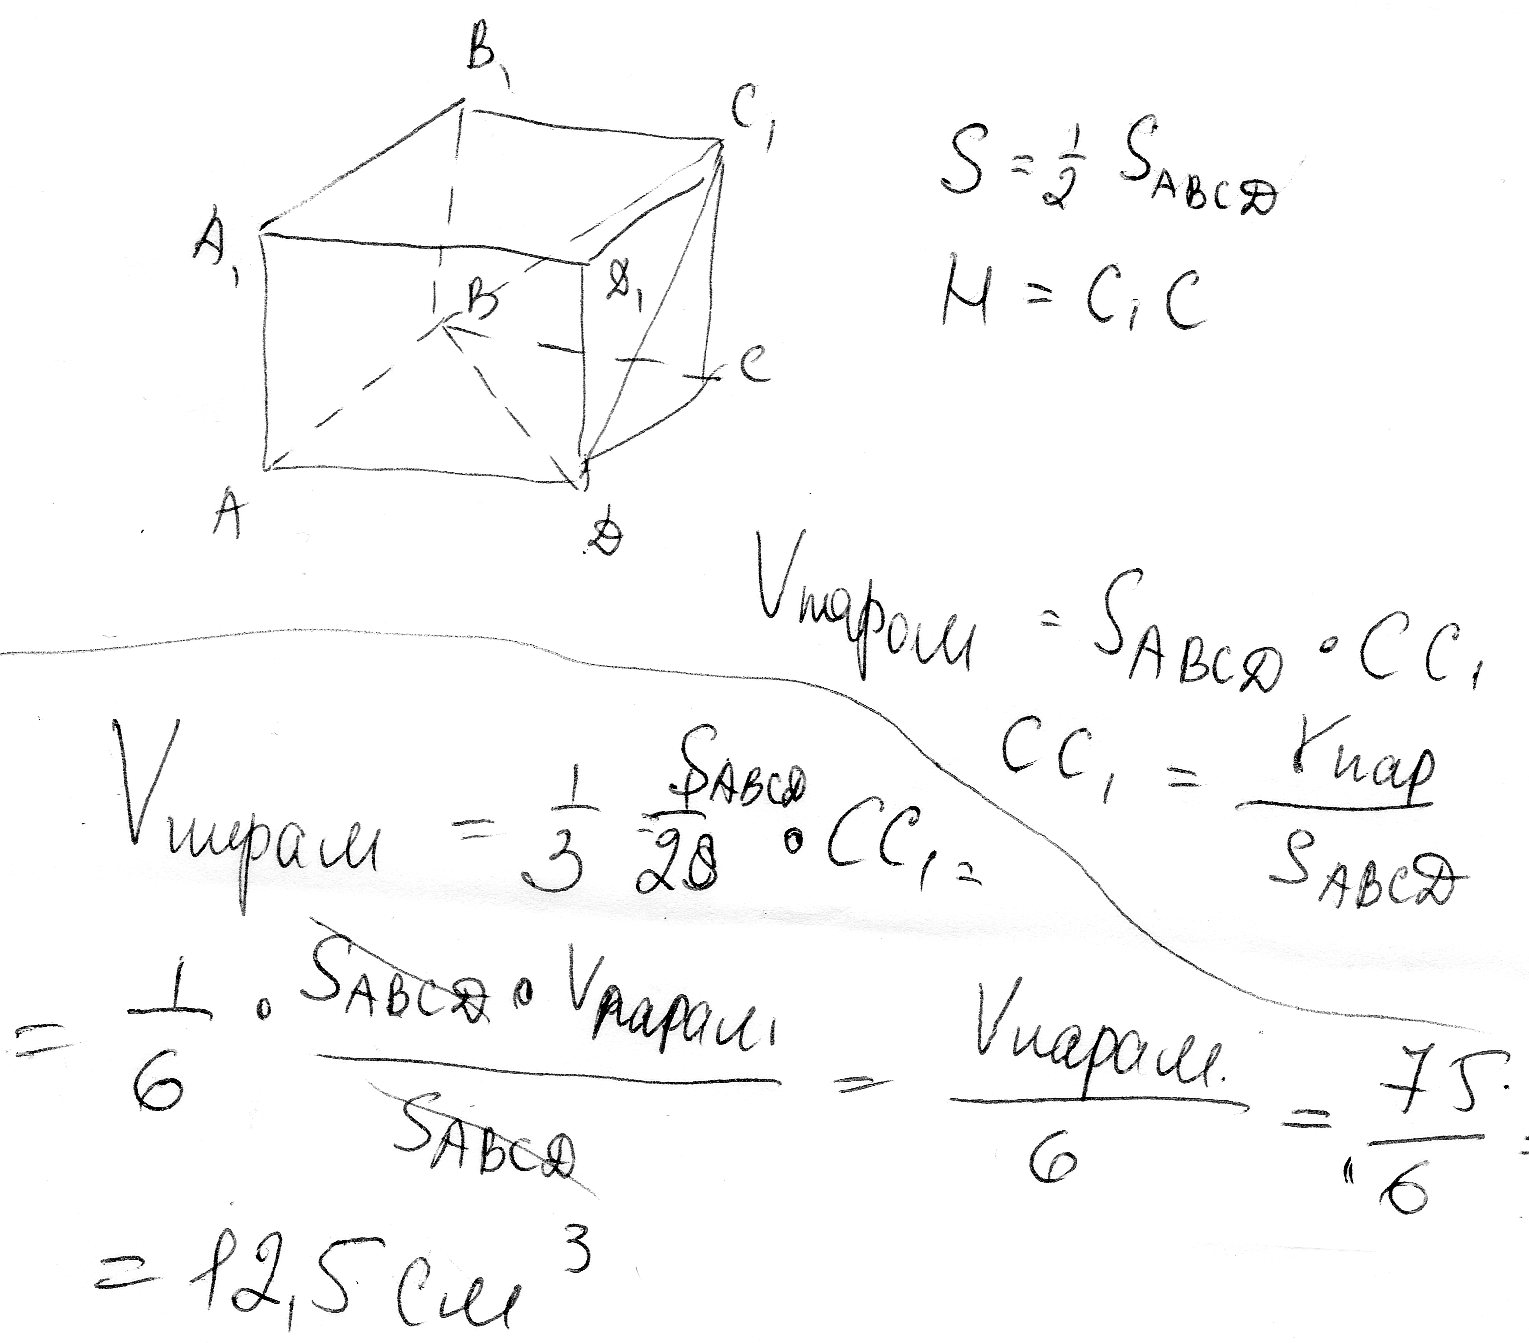 B₁
C₁
A₁
D₁
B
C
A
D
S = 1/2 S_ABCD
H = C₁C
Vпарам = S_ABCD • CC₁
CC₁ = Vпар / S_ABCD
Vпирам = 1/3 • 1/2 S_ABCD • CC₁ =
= 1/6 • S_ABCD • Vпарал. / S_ABCD = Vпарал. / 6 = 75 / 6 =
= 12,5 см³